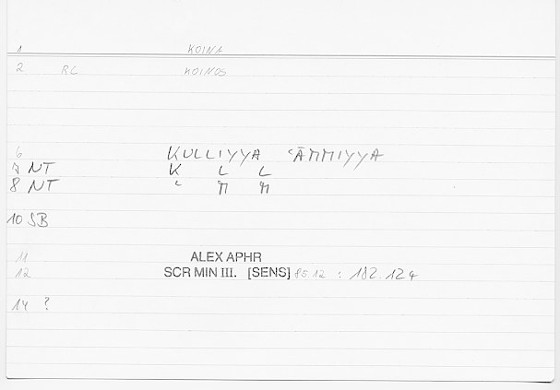 1 KOINA
2 RC KOINOS
6 KULLIYYA ʿĀMMIYYA
7 NT K L L
8 NT ʿ M M
10 SB
11 ALEX APHR
12 SCR MIN III. [SENS] 85.12 : 182.124
14 ?